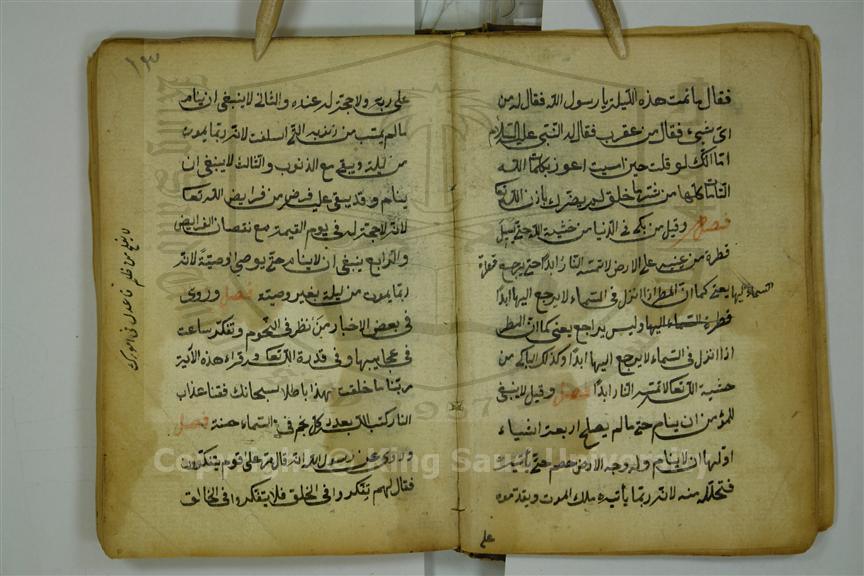 فقال ما نمت هذه الليلة يا رسول الله فقال له من
اى شيئ فقال من عقرب فقال له النبي عليه السلام
اما انك لو قلت حين امسيت اعوذ بكلمات الله
التامات كلها من شر ما خلق لم يضرك باذن الله تعا
فصل وقيل من بكى فى الدنيا من خشية الله حتى يسيل
قطرة من عينيه على الارض لا تمسه النار ابدا حتى يرجع قطرة
السماء اليها يعنى كما ان المطر اذا نزل فى السماء لا يرجع اليها ابدا
قطرة السماء اليها وليس يراجع يعنى كما ان المطر
اذا نزل فى السماء لا يرجع اليها ابدا وكذلك الباكى من
خشية الله تعالى لا تمسه النار ابدا فصل وقيل لا ينبغى
للمؤمن ان ينام حتى ما لم يصلح اربعة اشياء
اولها ان لا ينام وله وجه الارض خصم حتى
فتحلله منه لانه ربما يأتيه ملك الموت ويقدموه
على
١٣
على ربه ولا حجة له عنده والثانى لا ينبغى ان ينام
ما لم يتب من ذنوبه التى اسلفت لانه ربما يموت
من ليلة ويبقى مع الذنوب والثالث لا ينبغى ان
ينام وقد يبقى على فرض من فرايض الله تعا
لانه لا حجة له فى يوم القيمة مع نقصان الفرايض
والرابع ينبغى ان لا ينام حتى يوصى وصيته لانه
ربما يموت من ليلة بغير وصيته فصل وروى
فى بعض الاخبار من نظر فى النجوم وتفكر ساعة
فى عجايبها وفى قدرة الله تعا وقراء هذه الآية
ربنا ما خلقت هذا باطلا سبحانك فقنا عذاب
النار كتب الله بعدد كل نجم فى السماء حسنة فصل
وروى عن رسول الله انه قال مر على قوم يتفكرون
فقال لهم تفكروا فى الخلق فلا يتفكروا فى الخالق
1957
Copyright © King Saud University